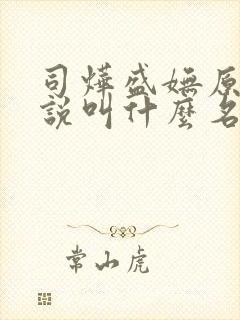 司烨盛嫵原
說叫什麼名
常山虎